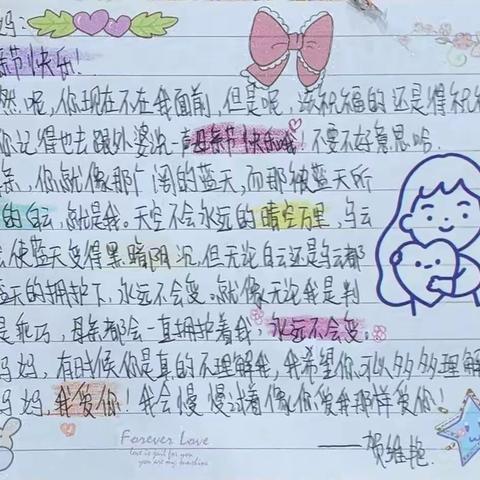 妈:
亲节快乐!
然呢,你现在不在我面前,但是呢,该祝福的还是得祝福
你记得也去跟外婆说一声母亲节快乐哦,不要不好意思哈.
亲,你就像那广阔的蓝天,而那被蓝天所
的白云,就是我。天空不会永远的晴空万里,乌云
会使蓝天变得黑暗阴沉,但无论白云还是乌云都
蓝天的拥护下,永远不会变。就像无论我是叛
是乖巧,母亲都会一直拥护着我,永远不会变。
妈妈,有时候你是真的不理解我,我希望你可以多多理解
妈妈,我爱你!我会慢慢试着像你爱我那样爱你!
Forever Love
love is just for you
you are my sunshine
——贺维艳.